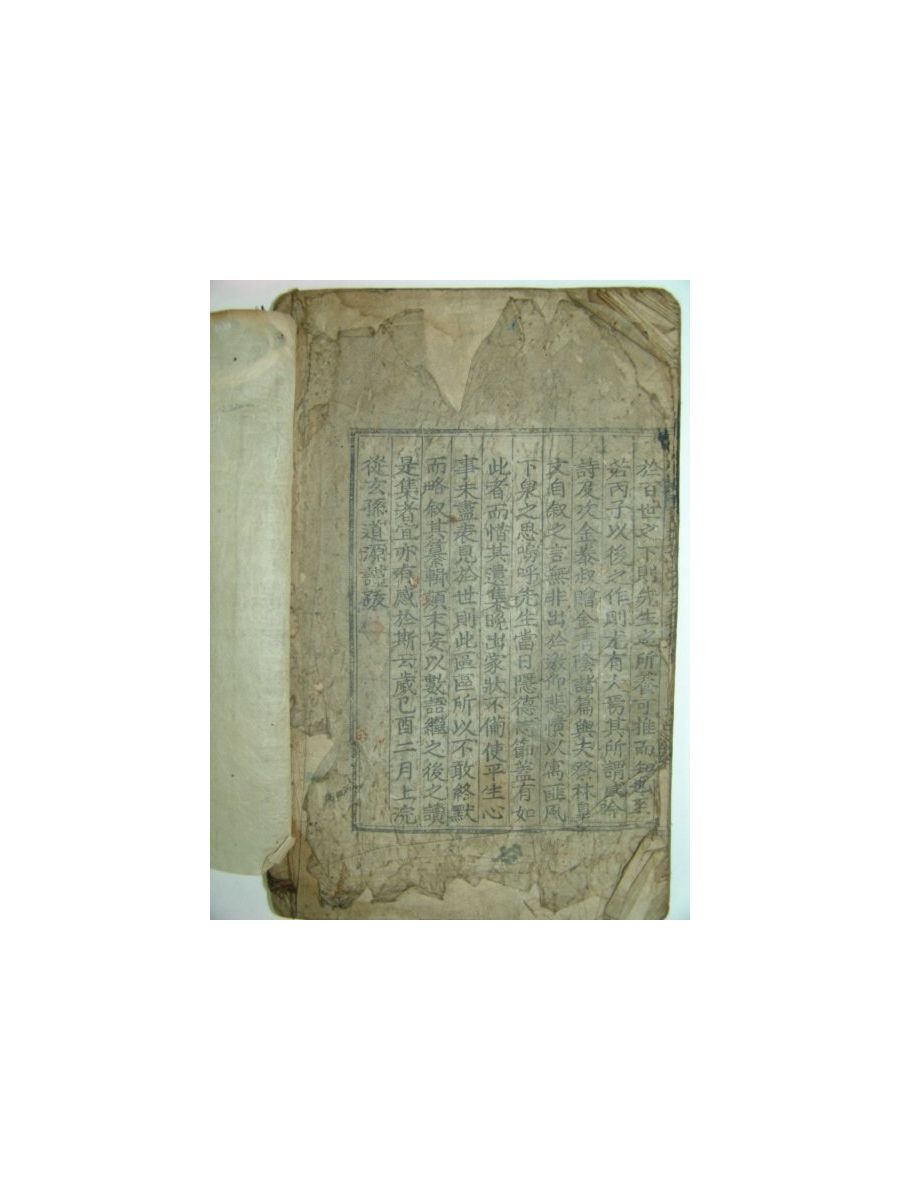 於百世之下則先生之所養可推而知也至
若丙子以後之作則尤有大焉其所謂感吟
詩及次金泰叔贈金淸陰諸篇與夫祭林
文自叙之言無非出於敬仰悲憤以寓匪風
下泉之思嗚呼先生當日隱德志節蓋有如
此者而惜其遺集晩出家狀不備使平生心
事未盡表見於世則此區區所以不敢終默
而略叙其纂輯顚末妄以數語繼之後之讀
是集者宜亦有感於斯云歲己酉二月上浣
從玄孫道源謹跋